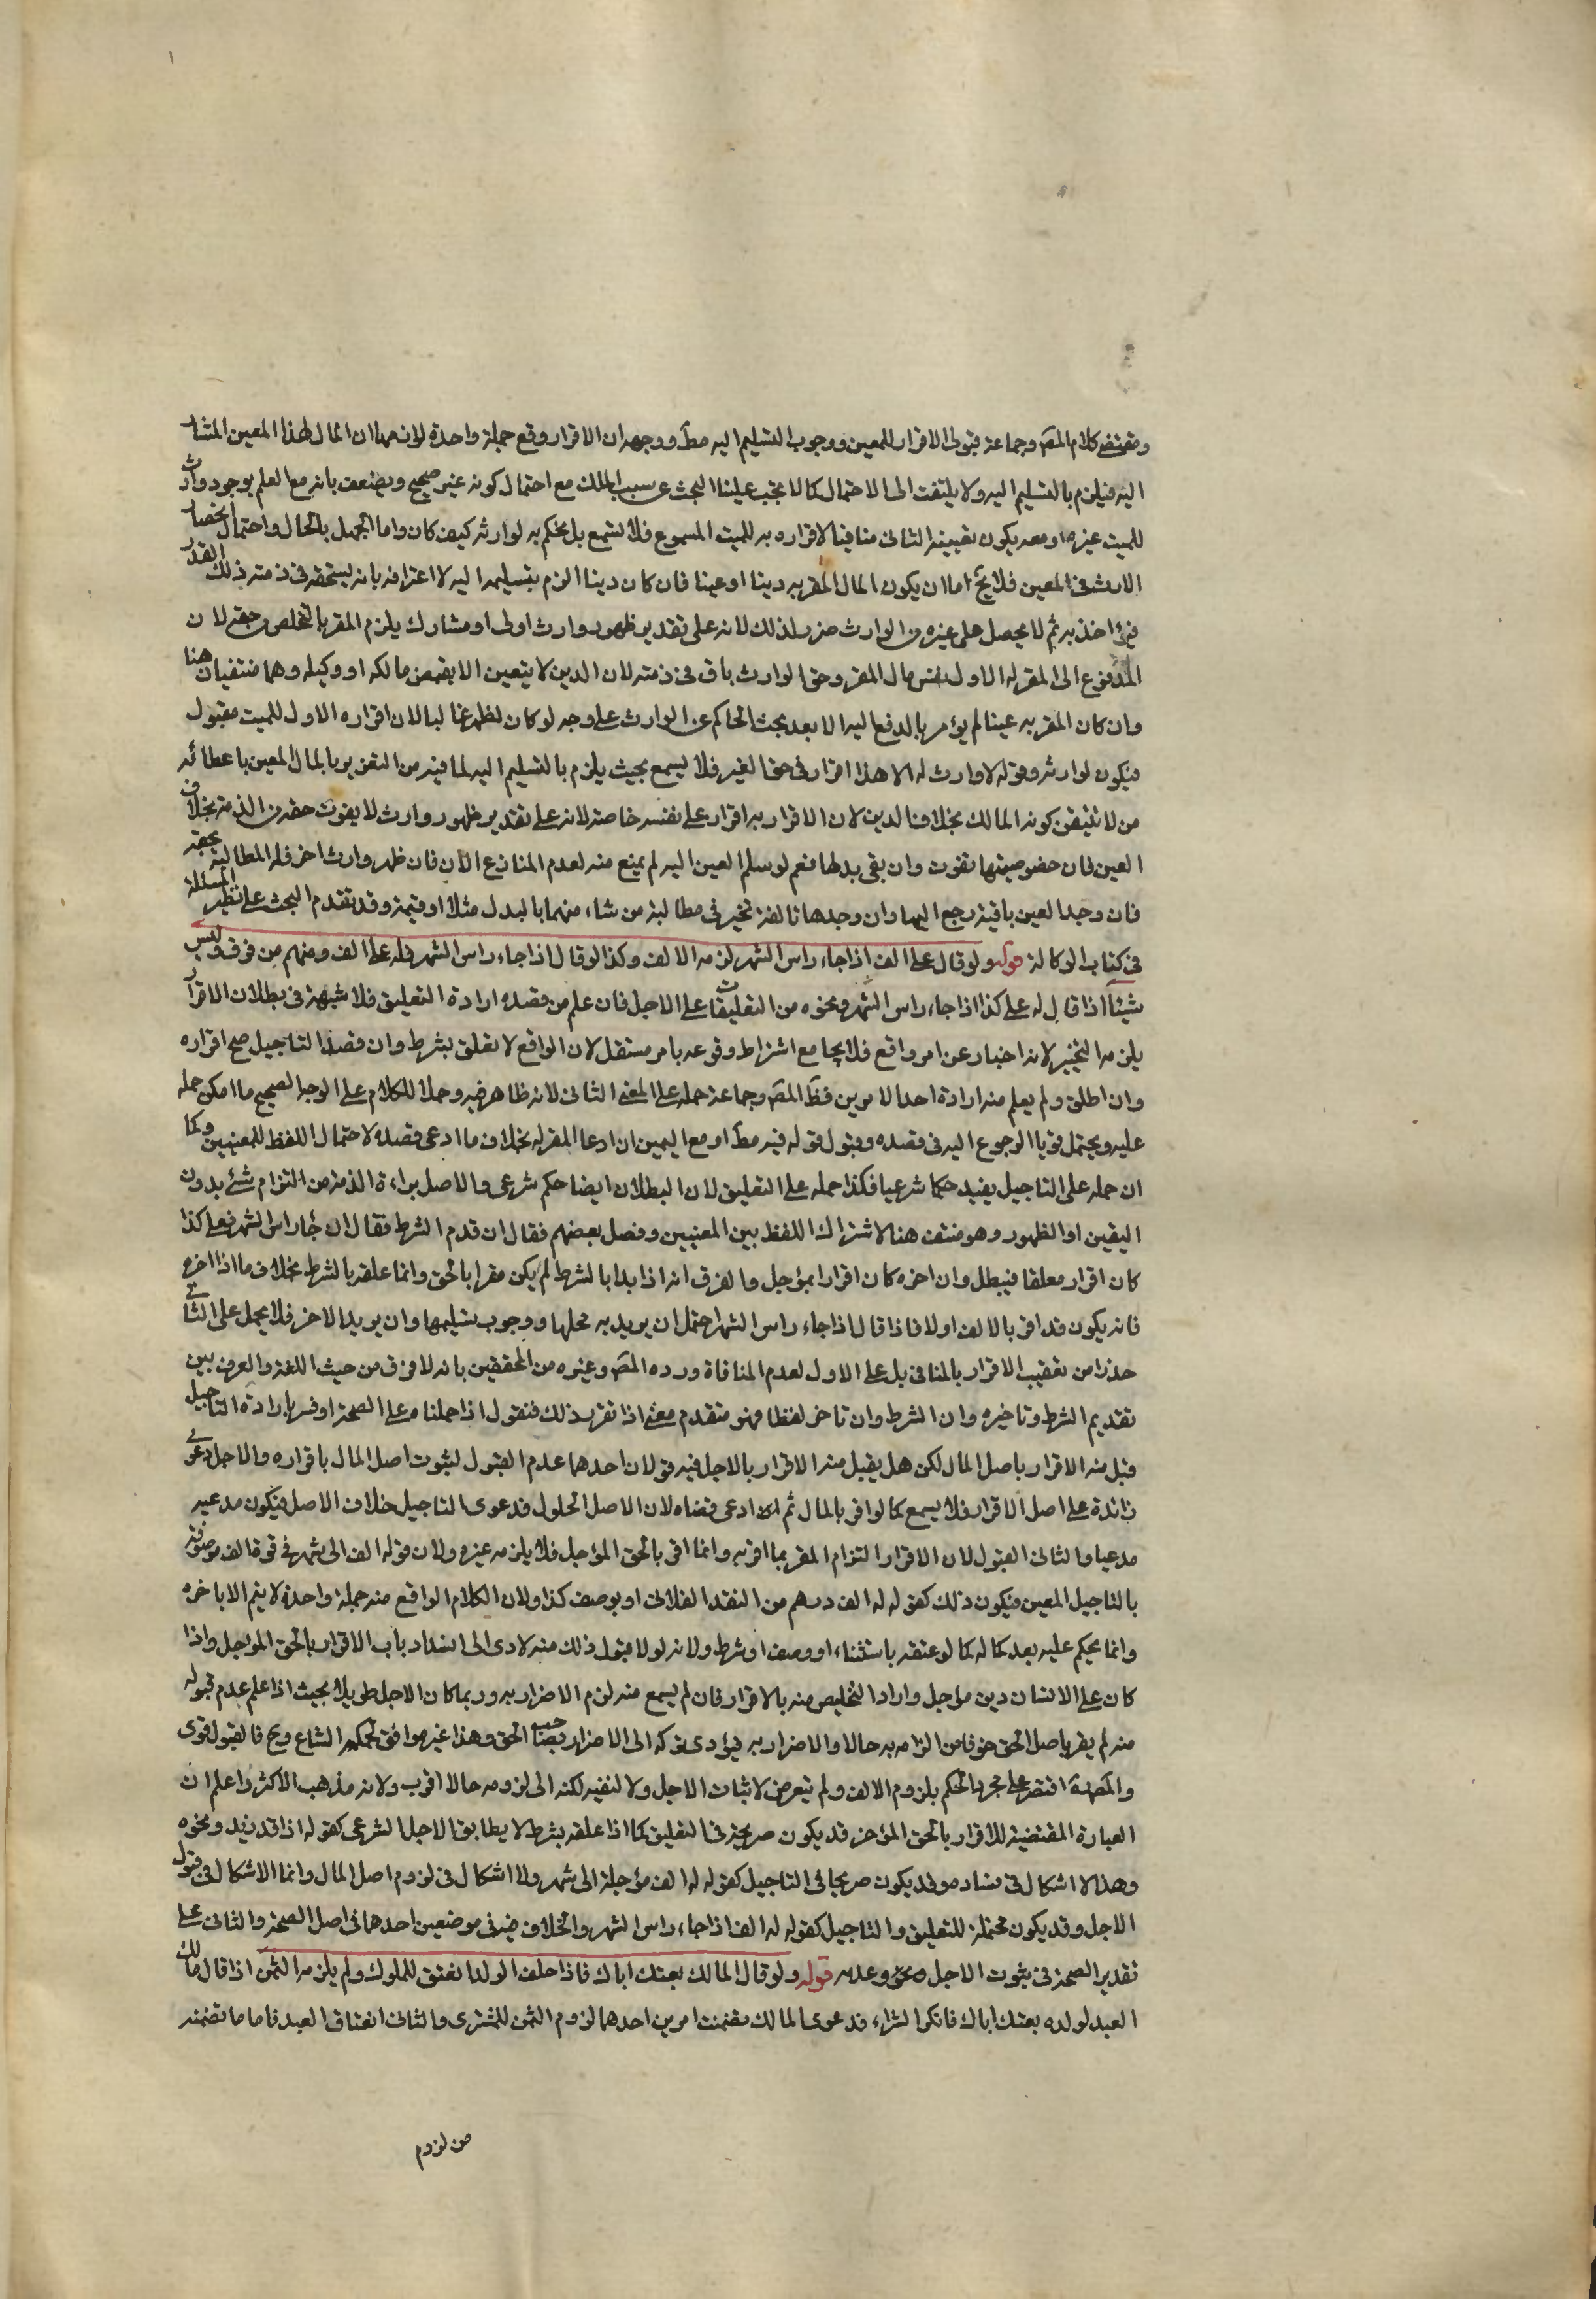 ومقتضى كلام المصَ وجماعة قبول الاقرار للمعين ووجوب التسليم اليه مطَ ووجهه ان الاقرار وقع جملة واحدة لان مهما ان المال لهذا المعين المشار
اليه فيلزم بالتسليم اليه ولا يلتفت الى الاحتمال كما لا يجب علينا البحث عن سبب الملك مع احتمال كونه غير صحيح ويضعف بانه مع العلم بوجود وارث
للميت غيره او معه يكون تعيينه الثانى منافيا لاقراره به للميت المسموع فلا يسمع بل يحكم به لوارثه كيف كان واما الجهل بالحال واحتمال انحصار
الارث فى المعين فلا يخ اما ان يكون المال المقر به دينا او عينا فان كان دينا الزم بتسليمه اليه لاعترافه بانه يستحقه فى ذمته ذلك القدر
فيؤاخذ به ثم لا يحصل على غيره من الوارث ضرر لذلك لانه على تقدير ظهور وارث اولى او مشارك يلزم المقر بالتخلص من حقه لان
المدفوع الى المقر له الاول نفس مال المقر وحق الوارث باق فى ذمته لان الدين لا يتعين الا بقبض مالكه او وكيله وهما منتفيان هنا
وان كان المقر به عينا لم يؤمر بالدفع اليه الا بعد بحث الحاكم عن الوارث على وجه لو كان لظهر غالبا لان اقراره الاول للميت مقبول
فيكون لوارثه وقوله لا وارث له الا هذا اقرار فى حق الغير فلا يسمع بحيث يلزم بالتسليم اليه لما فيه من التغرير بالمال المعين باعطائه
من لا نتيقن كونه المالك بخلاف الدين لان الاقرار به اقرار على نفسه خاصة لانه على تقدير ظهور وارث لا يفوت حقه من الذمة بخلاف
العين فان خصوصيتها تفوت وان بقى بدلها نعم لو سلم العين اليه لم يمنع منه لعدم المنازع الآن فان ظهر وارث اخر فله المطالبة بحقه
فان وجد العين باقية رجع اليها وان وجدها تالفة تخير فى مطالبة من شاء منهما بالبدل مثلا او قيمة وقد تقدم البحث على نظير المسئلة
فى كتاب الوكالة قوله ولو قال على الف اذا جاء راس الشهر لزمه الالف وكذا لو قال اذا جاء راس الشهر فله على الف ومنهم من فرق وليس
شيئا اذا قال له على كذا اذا جاء راس الشهر ونحوه من التعليقات على الاجل فان علم من قصده ارادة التعليق فلا شبهة فى بطلان الاقرار
يلزمه التخيير لانه اخبار عن امر واقع فلا يجامع اشتراط وقوعه بامر مستقل لان الواقع لا يعلق بشرط وان قصد التاجيل صح اقراره
وان اطلق ولم يعلم منه ارادة احد الامرين فظَ المصَ وجماعة حمله على المعنى الثانى لانه ظاهر فيه وحملا للكلام على الوجه الصحيح ما امكن حمله
عليه ويحتمل قويا الرجوع اليه فى قصده وقبول قوله فيه مطَ او مع اليمين ان ادعا المقر له بخلاف ما ادعى قصده لاحتمال اللفظ للمعنيين وكما
ان حمله على التاجيل يفيد حكما شرعيا فكذا حمله على التعليق لان البطلان ايضا حكم شرعى والاصل براءة الذمة من التزام شئ بدون
اليقين او الظهور وهو منتف هنا لاشتراك اللفظ بين المعنيين وفصل بعضهم فقال ان قدم الشرط فقال ان جاء راس الشهر فعلى كذا
كان اقرار معلقا فيبطل وان اخره كان اقرارا بمؤجل والفرق انه اذا بدا بالشرط لم يكن مقرا بالحق وانما علقه بالشرط بخلاف ما اذا اخره
فانه يكون قد اقر بالالف اولا فاذا قال اذا جاء راس الشهر احتمل ان يريد به محلها ووجوب تسليمها وان يريد الاخر فلا يحمل على الثانى
حذرا من تعقيب الاقرار بالمنافى بل على الاول لعدم المنافاة ورده المصَ وغيره من المحققين بانه لا فرق من حيث اللغة والعرف بين
تقديم الشرط وتاخيره وان الشرط وان تاخر لفظا فهو متقدم معنى اذا تقرر ذلك فنقول اذا حملناه على الصحة او فسر بارادة التاجيل
قبل منه الاقرار باصل المال لكن هل يقبل منه الاقرار بالاجل فيه قولان احدهما عدم القبول لثبوت اصل المال باقراره والاجل دعوى
زائدة على اصل الاقرار فلا يسمع كما لو اقر بالمال ثم ادعى قضاه لان الاصل الحلول فدعوى التاجيل خلاف الاصل فيكون مدعيه
مدعيا والثانى القبول لان الاقرار التزام المقر بما اقر به وانما اقر بالحق المؤجل فلا يلزمه غيره ولان قوله الف الى شهر فى قوة الف موصوفة
بالتاجيل المعين فيكون ذلك كقوله له الف درهم من النقد الفلانى او بوصف كذا ولان الكلام الواقع منه جملة واحدة لا يتم الا باخره
وانما يحكم عليه بعد كماله كما لو عقبه باستثناء او وصف او شرط ولانه لولا قبول ذلك منه لادى الى انسداد باب الاقرار بالحق المؤجل واذا
كان على الانسان دين مؤجل واراد التخليص منه بالاقرار فان لم يسمع منه لزم الاضرار به وربما كان الاجل طويلا بحيث اذا علم عدم قبوله
منه لم يقر باصل الحق خوفا من الزامه به حالا والاضرار به فيؤدى تركه الى الاضرار بصاحب الحق وهذا غير موافق لحكمه الشارع وح فالقبول اقوى
والمصَ اقتصر على مجرد الحكم بلزوم الالف ولم يتعرض لاثبات الاجل ولا لنفيه لكنه الى لزومه حالا اقرب ولانه مذهب الاكثر واعلم ان
العبارة المقتضية للاقرار بالحق المؤخر قد يكون صريحة فى التعليق كما اذا علقه بشرط لا يطابق الاجل الشرعى كقوله اذا قدم زيد ونحوه
وهذا لا اشكال فى فساده وقد يكون صريحا فى التاجيل كقوله له الف مؤجلة الى شهر ولا اشكال فى لزوم اصل المال وانما الاشكال فى قبول
الاجل وقد يكون محتملة للتعليق والتاجيل كقوله له الف اذا جاء راس الشهر والخلاف فيه فى موضعين احدهما فى اصل الصحة والثانى على
تقدير الصحة فى ثبوت الاجل وعدمه قوله ولو قال المالك بعتك اباك فاذا حلف الولد انعتق المملوك ولم يلزمه الثمن اذا قال مالك
العبد لولده بعتك اباك فانكر الشراء فدعوى المالك تضمنت امرين احدهما لزوم الثمن للمشترى والثانى انعتاق العبد فاما ما تضمنه
من لزوم